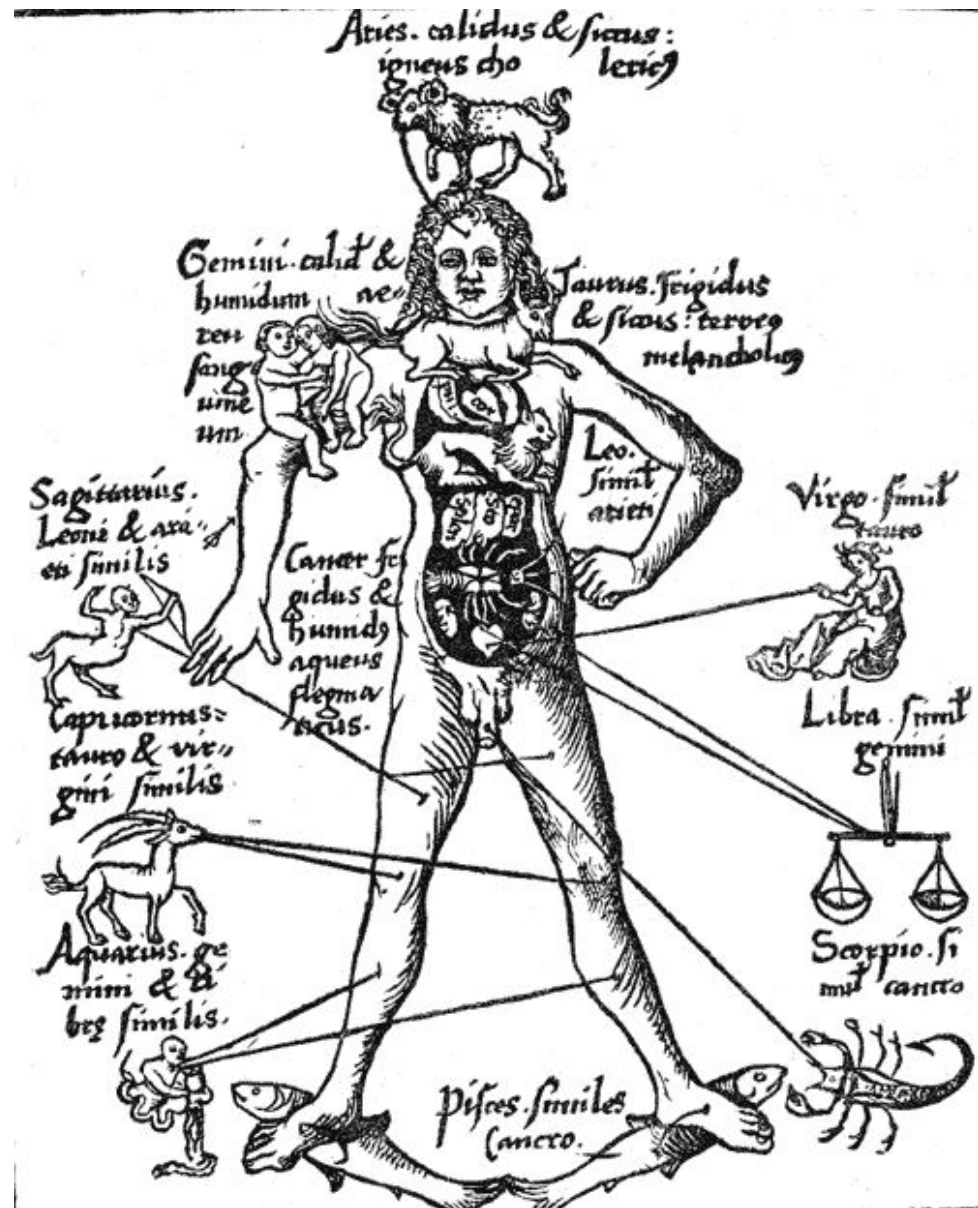 Aries. calidus & siccus:
igneus cho lericꝯ
Gemini. calid⁹ &
humidum ae=
reu
sang
uine
um
Taurus. frigidus
& siccus: terreꝯ
melancholicꝯ
cor
Leo.
simil̃
arieti
Sagittarius.
Leoni & ari=
eti similis
Cancer fri
gidus &
humidꝯ
aqueus
flegma
ticus.
Virgo. simil̃
tauro
Capricornus=
tauro & vir=
gini similis
Libra. simil̃
gemini
Aquarius. ge
mini & li
brę similis.
Scorpio. si
mil̃ cancro
Pisces. similes
Cancro.